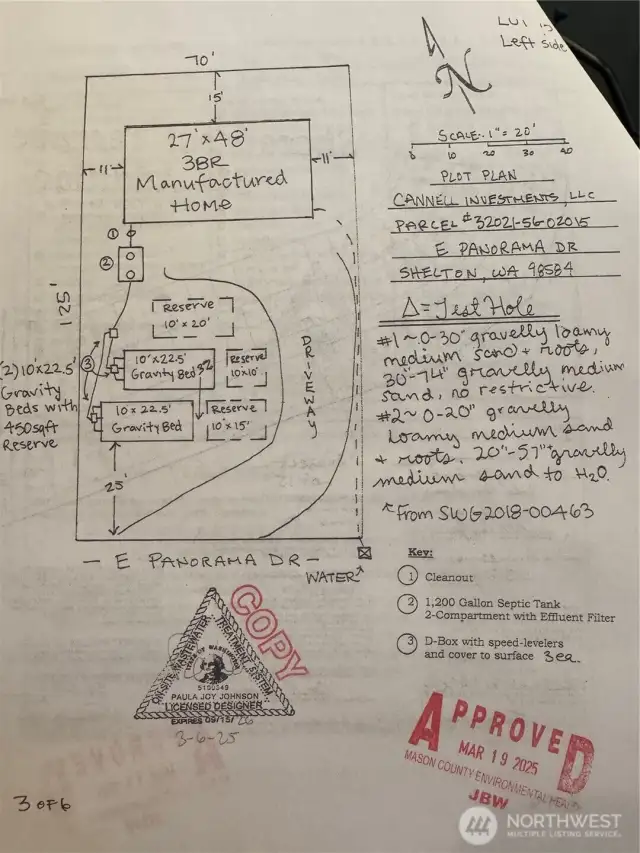 LOT 15
Left side
70'
15'
N
27' x 48'
3BR
Manufactured
Home
11'
11'
SCALE: 1" = 20'
0 10 20 30 40
PLOT PLAN
CANNELL INVESTMENTS, LLC
PARCEL # 32021-56-02015
E PANORAMA DR
SHELTON, WA 98584
Δ = Test Hole
#1 ~ 0-30" gravelly loamy
medium sand + roots,
30"-74" gravelly medium
sand, no restrictive.
#2 ~ 0-20" gravelly
loamy medium sand
+ roots. 20"-57" gravelly
medium sand to H2O.
↑ from SWG2018-00463
1
2
125'
Reserve
10' x 20'
DRIVEWAY
3
(2) 10'x22.5'
Gravity
Beds with
450 sqft
Reserve
10' x 22.5'
Gravity Bed
Reserve
10'x10'
10 x 22.5'
Gravity Bed
Reserve
10' x 15'
25'
— E PANORAMA DR —
WATER
Key:
1 Cleanout
2 1,200 Gallon Septic Tank
2-Compartment with Effluent Filter
3 D-Box with speed-levelers
and cover to surface 3 ea.
COPY
ONSITE WASTEWATER TREATMENT SYSTEM
STATE OF WASHINGTON
5100349
PAULA JOY JOHNSON
LICENSED DESIGNER
EXPIRES 09/15/26
3-6-25
APPROVED
MAR 19 2025
MASON COUNTY ENVIRONMENTAL HEALTH
JBW
3 OF 6
NORTHWEST
MULTIPLE LISTING SERVICE